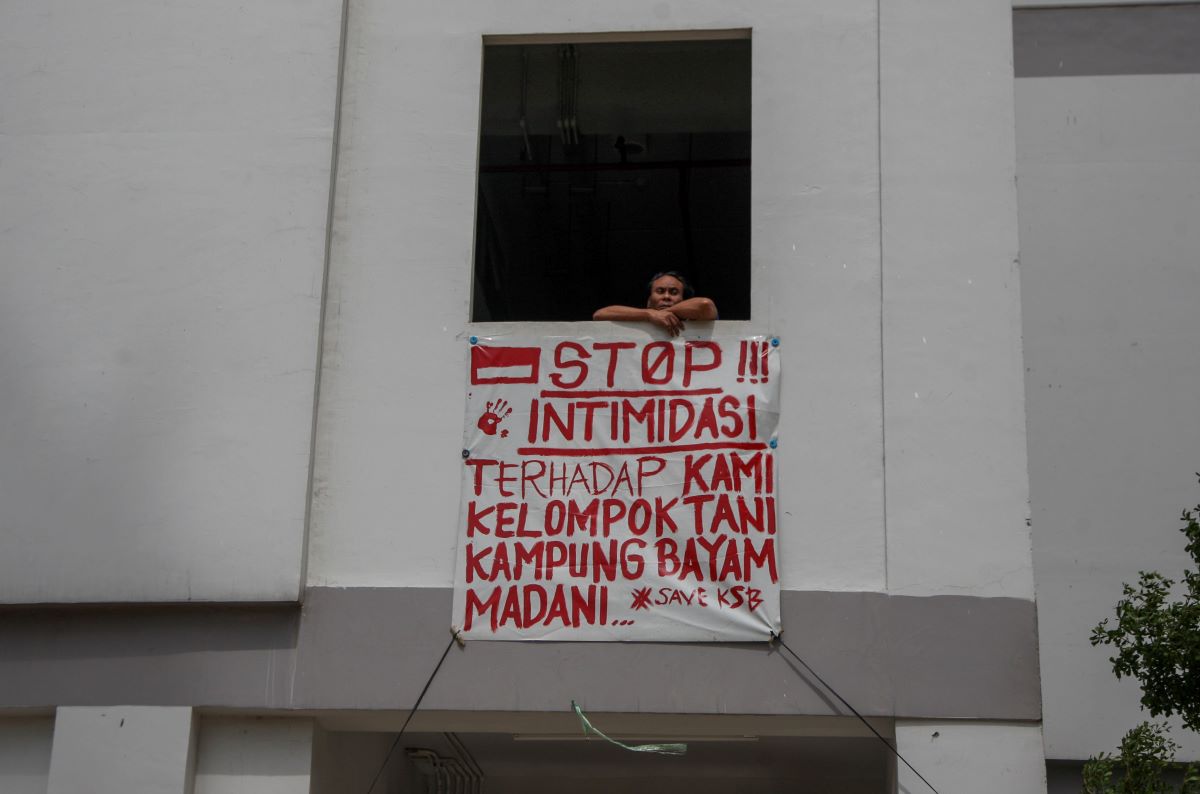 STOP !!!
INTIMIDASI
TERHADAP KAMI
KELOMPOK TANI
KAMPUNG BAYAM
MADANI... #SAVE KSB